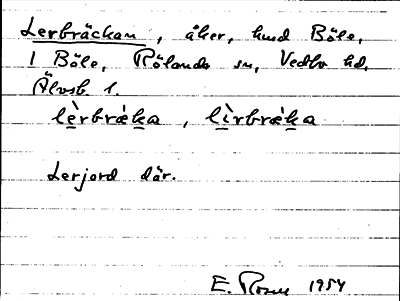 Lerbräckan, åker, hmd Böle,
1 Böle, Rölanda sn, Vedbo hd,
Älvsb. l.
lèrbrǽka, lìrbrǽka
Lerjord där.
E. Rosen 1954